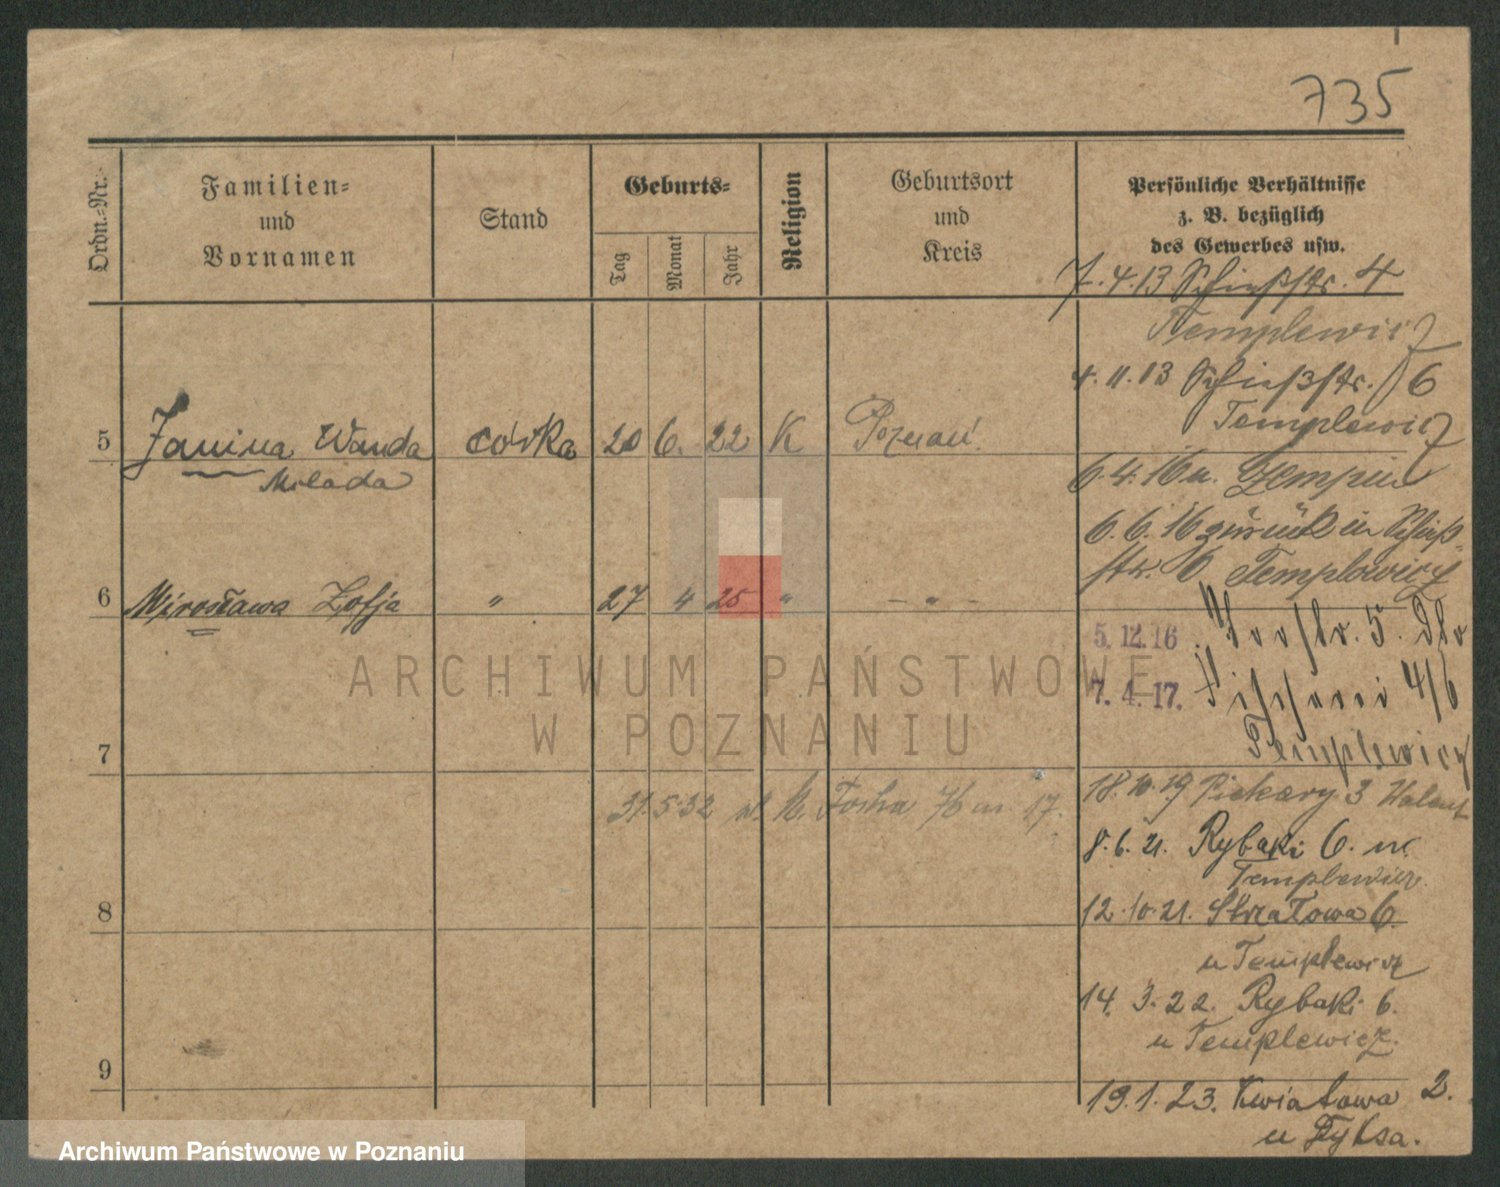 735
Ordn.-Nr.
Familien-
und
Vornamen
Stand
Geburts-
Tag
Monat
Jahr
Religion
Geburtsort
und
Kreis
Persönliche Verhältnisse
z. B. bezüglich
des Gewerbes usw.
7.4.13 Schießstr. 4
Templewicz
4.11.13 Schießstr. 6
Templewicz
5 Janina Wanda córka 20 6. 22 K Poznań
Milada
6.4.16 n.
6.6.16 zurück in Schieß-
str. 6 Templewicz
6 Mirosława Zofja " 27 4 25 " - " -
5.12.16
7.4.17. 4/6
Templewicz
ARCHIWUM PAŃSTWOWE
W POZNANIU
7
31.5.32 Focha 76 m. 17.
18.10.19 Piekary 3
8.6.21. Rybaki 6. m
Templewicz
8
12.10.21. Strzałowa 6.
u Templewicz
14.3.22. Rybaki 6.
u Templewicz.
9
19.1.23. Kwiatowa 2.
u
Archiwum Państwowe w Poznaniu